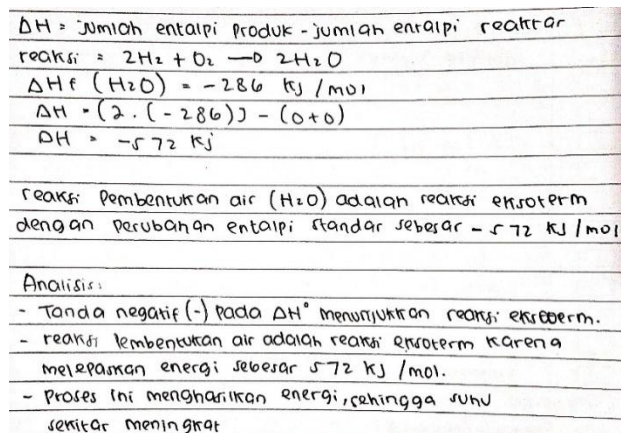 ΔH = jumlah entalpi produk - jumlah entalpi reaktan
reaksi = 2H₂ + O₂ → 2H₂O
ΔHf (H₂O) = -286 kj / mol
ΔH = (2 . (-286)) - (0+0)
ΔH = -572 kj
reaksi Pembentukan air (H₂O) adalah reaksi eksoterm
dengan Perubahan entalpi standar sebesar - 572 kJ / mol
Analisis:
- Tanda negatif (-) pada ΔH° menunjukkan reaksi eksoterm.
- reaksi Pembentukan air adalah reaksi eksoterm karena
melepaskan energi sebesar 572 kJ / mol.
- Proses ini menghasilkan energi, sehingga suhu
sekitar meningkat